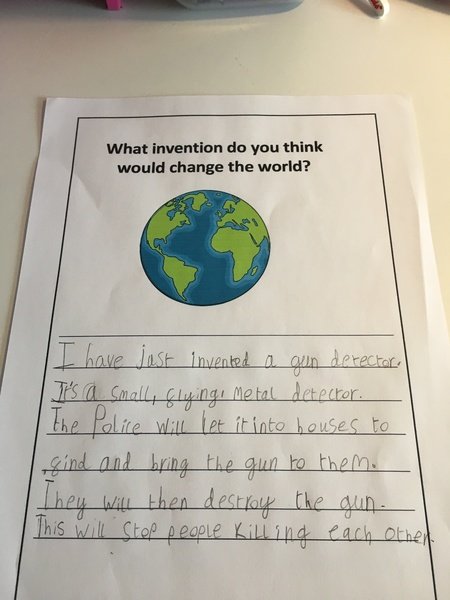 What invention do you think
would change the world?
I have just invented a gun detector.
It's a small, flying, metal detector.
The Police will let it into houses to
find and bring the gun to them.
They will then destroy the gun.
This will stop people killing each other.